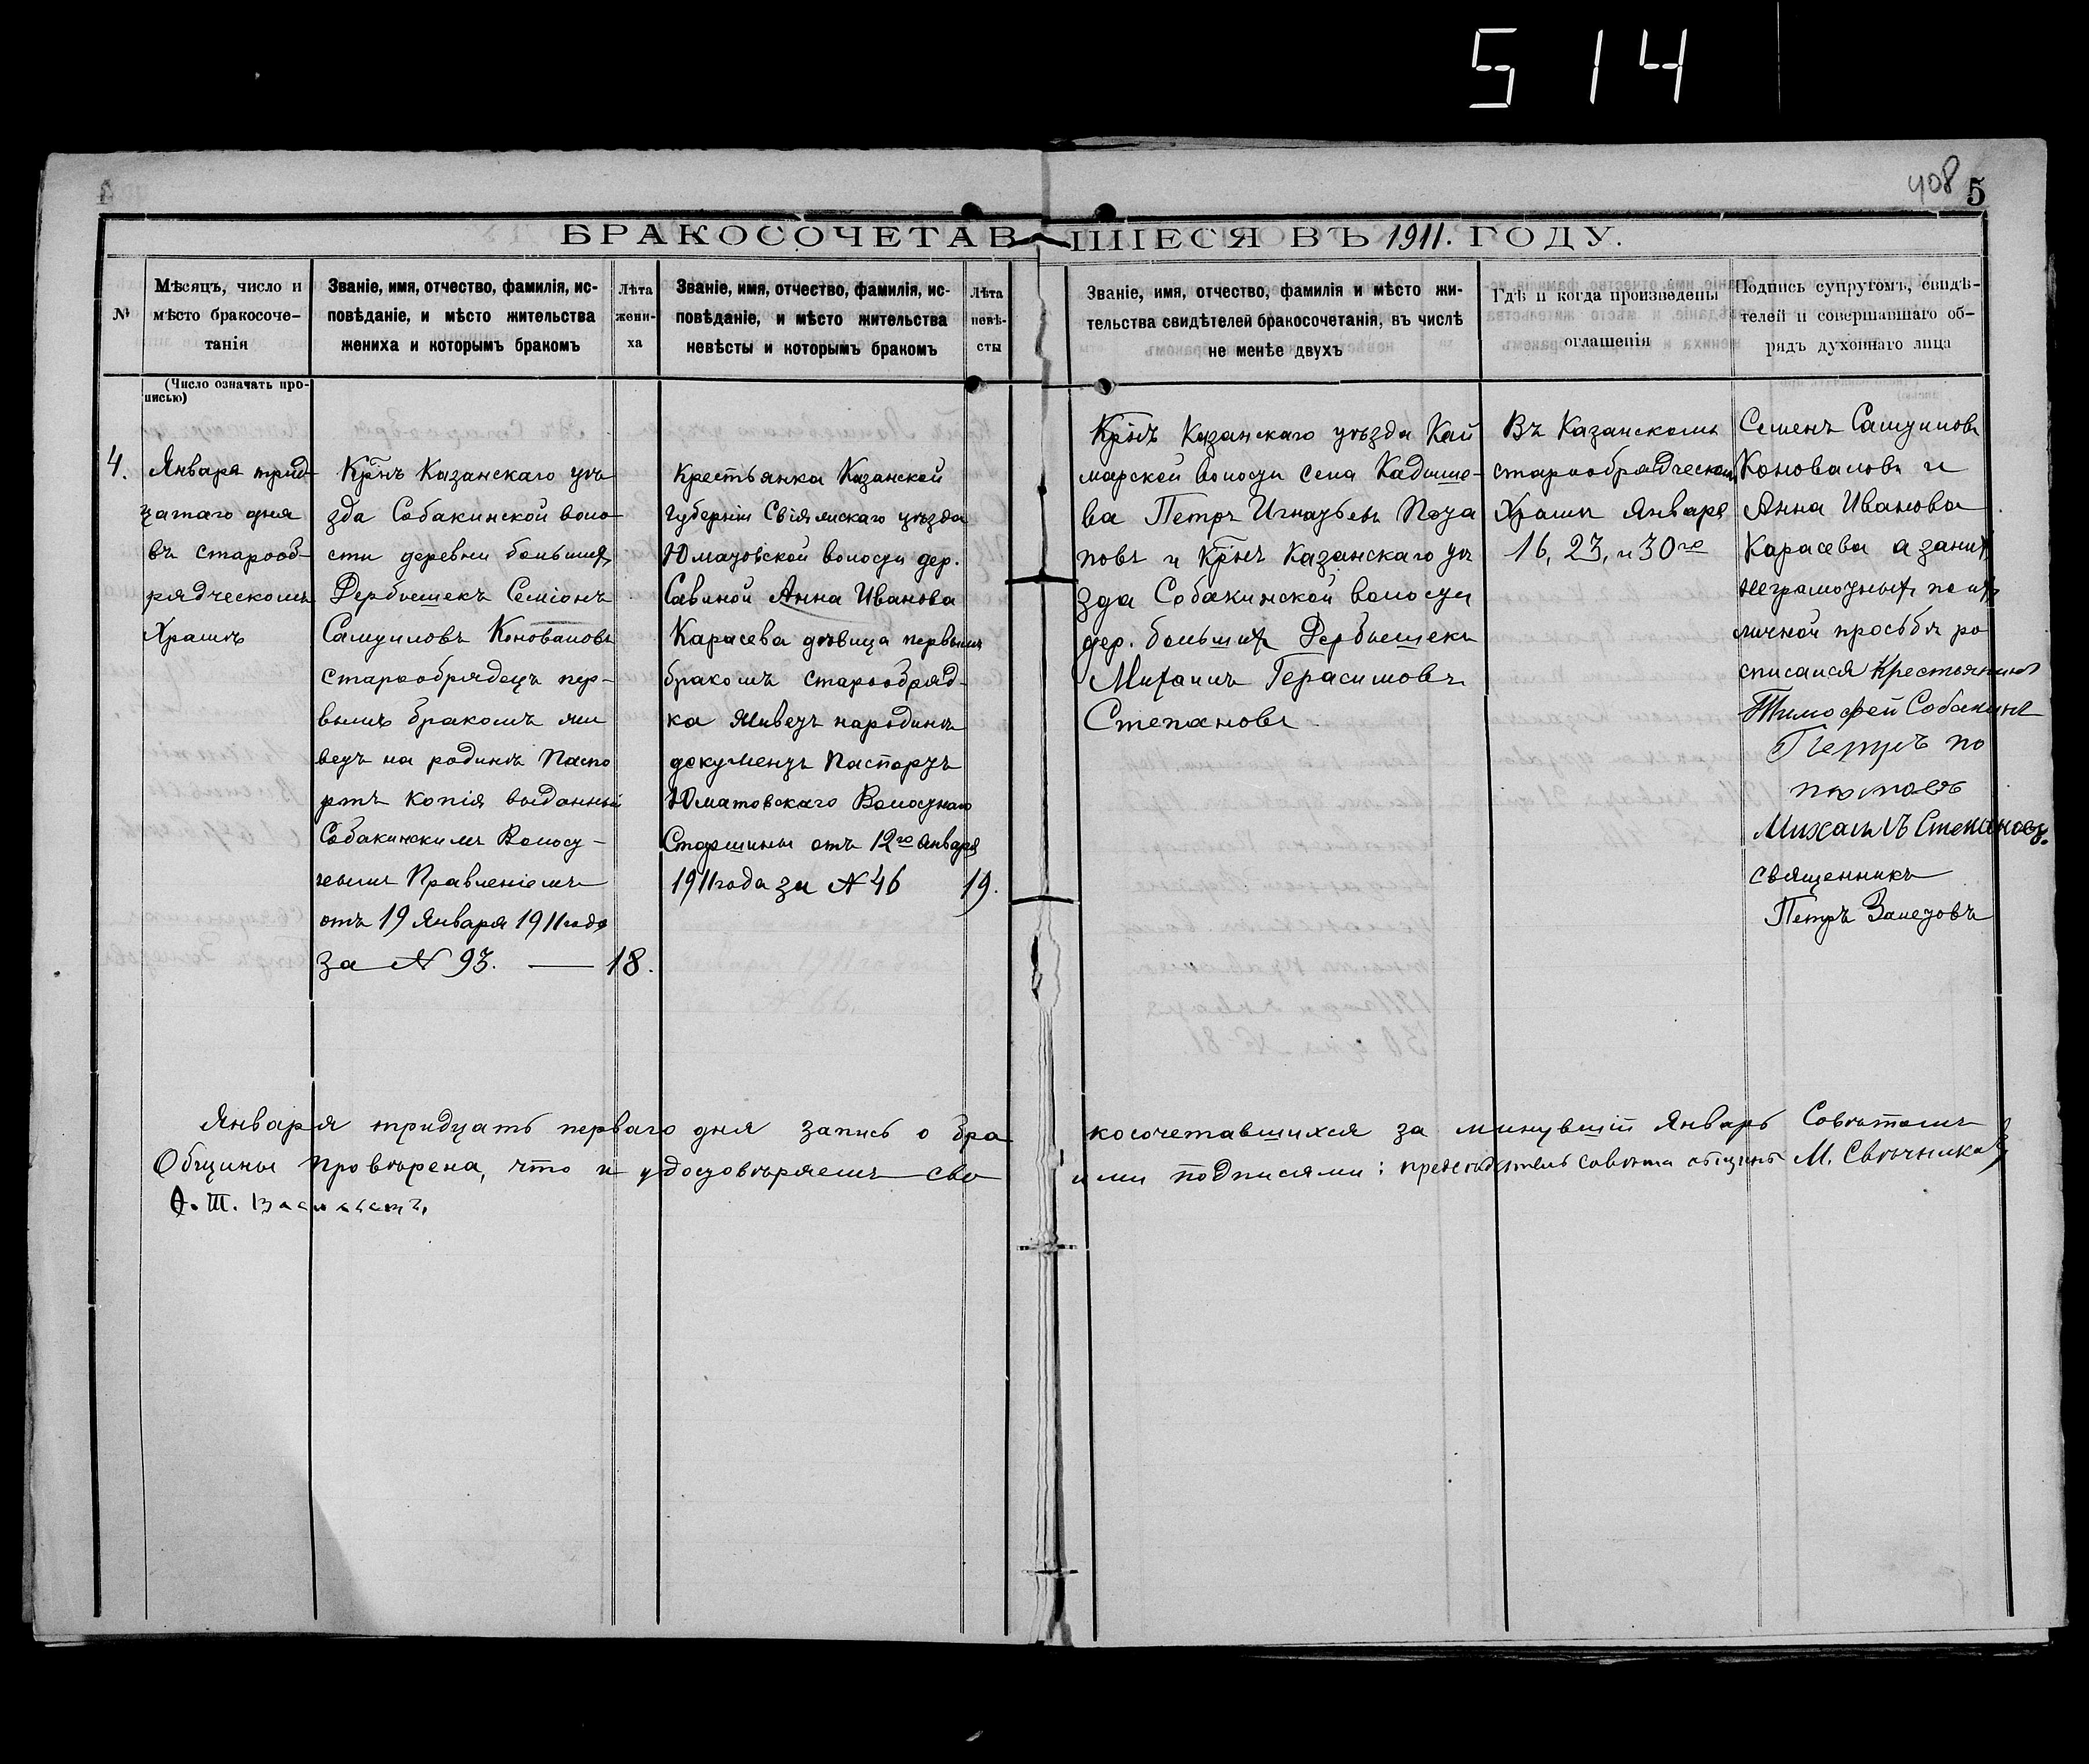 514
408 5
БРАКОСОЧЕТАВШІЕСЯ ВЪ 1911. ГОДУ.
№
Мѣсяцъ, число и
мѣсто бракосоче-
танія
Званіе, имя, отчество, фамилія, ис-
повѣданіе, и мѣсто жительства
жениха и которымъ бракомъ
Лѣта
жени-
ха
Званіе, имя, отчество, фамилія, ис-
повѣданіе, и мѣсто жительства
невѣсты и которымъ бракомъ
Лѣта
невѣ-
сты
Званіе, имя, отчество, фамилія и мѣсто жи-
тельства свидѣтелей бракосочетанія, въ числѣ
не менѣе двухъ
Гдѣ и когда произведены
оглашенія
Подпись супруговъ, свидѣ-
телей и совершавшаго об-
рядъ духовнаго лица
(Число означать про-
писью)
4.
Января трид-
цатаго дня
въ старооб-
рядческомъ
Храмѣ
Крнъ Казанскаго уѣ
зда Собакинской воло-
сти деревни большихъ
Дербышекъ Семіонъ
Самуиловъ Коноваловъ
старообрядецъ пер-
вымъ бракомъ жи
ветъ на родинѣ Паспо
ртъ копія выданный
Собакинскимъ Волост-
нымъ Правленіемъ
отъ 19 Января 1911 года
за № 93. — 18.
Крестьянка Казанской
губерніи Свіяжскаго уѣзда
Юматовской волости дер.
Савиной Анна Иванова
Карасева дѣвица первымъ
бракомъ старообряд-
ка живетъ народинѣ
документъ Паспортъ
Юматовскаго Волостнаго
Старшины отъ 12го января
1911 года за № 46 19.
Крнъ Казанскаго уѣзда Кай
марской волости села Кадыше-
ва Петръ Игнатьевъ Пота
повъ и Крнъ Казанскаго уѣ
зда Собакинской волости
дер. большихъ Дербышекъ
Михаилъ Герасимовъ
Степановъ
Въ Казанскомъ
старообрядческомъ
Храмѣ Января
16, 23, и 30го
Семенъ Самуиловъ
Коноваловъ и
Анна Иванова
Карасева а за нихъ
неграмотныхъ по ихъ
личной просьбѣ ро
списался Крестьянинъ
Тимофей Собакинъ
Петръ по
таповъ
Михаилъ Степановъ.
священникъ
Петръ Залетовъ
Января тридцать перваго дня запись о бра косочетавшихся за минувшій Январь Совѣтомъ
Общины провѣрена, что и удостовѣряемъ сво ими подписями: председатель совѣта общины М. Свѣчниковъ